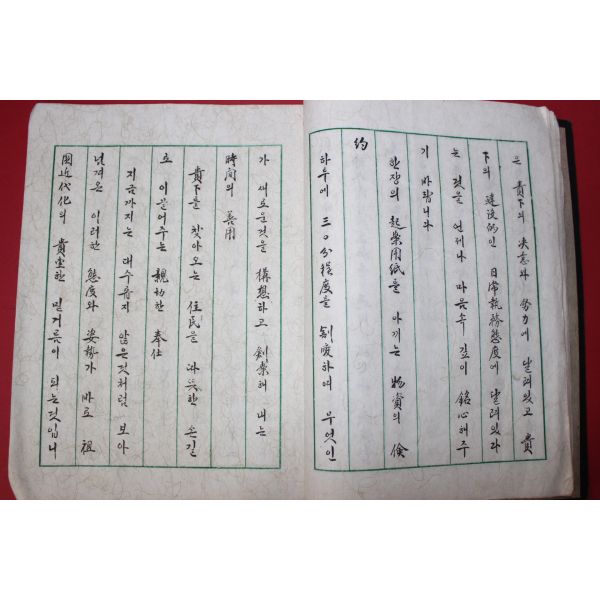 은 貴下의 決意와 努力에 달려있고 貴
下의 建設的인 日常執務態度에 달려있다
는 것을 언제나 마음속 깊이 銘心해주
기 바랍니다
한장의 起案用紙를 아끼는 物資의 儉
約
하루에 三○分程度를 割愛하여 무엇인
가 새로운것을 構想하고 創案해 내는
時間의 善用
貴下를 찾아오는 住民을 따뜻한 손길
로 이끌어주는 親切한 奉仕
지금까지는 대수롭지 않은것처럼 보아
넘겨온 이러한 態度와 姿勢가 바로 祖
國近代化의 貴重한 밑거름이 되는것입니